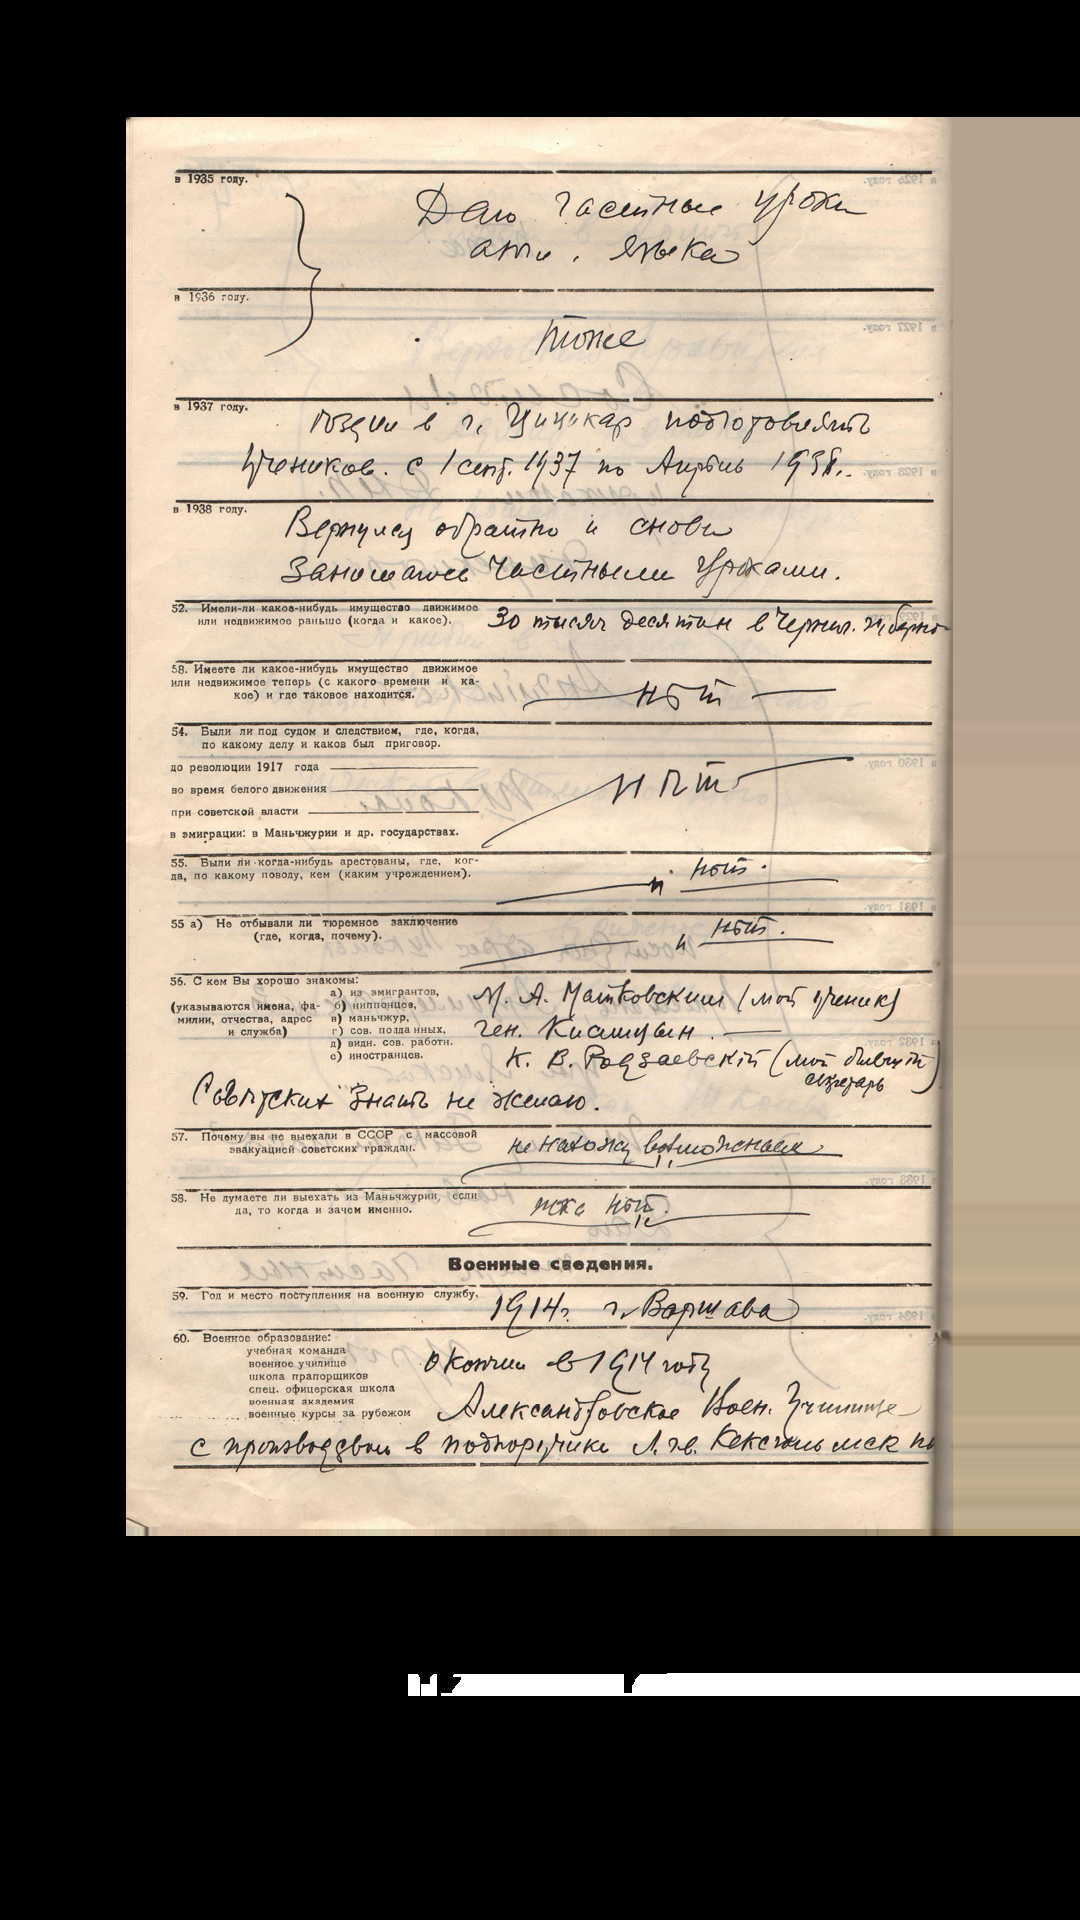 в 1935 году.
Даю частные уроки
англ. языка
в 1936 году.
тоже
в 1937 году.
в г. Цицикар подготовлять
учеников. с 1 сент. 1937 по Апрѣль 1938.
в 1938 году.
Вернулся обратно и снова
занимаюсь частными уроками.
52. Имели-ли какое-нибудь имущество движимое
или недвижимое раньше (когда и какое).
30 тысяч десятин в Черниг. губерн
58. Имеете ли какое-нибудь имущество движимое
или недвижимое теперь (с какого времени и ка-
кое) и где таковое находится.
нѣт
54. Были ли под судом и следствием, где, когда,
по какому делу и каков был приговор.
до революции 1917 года
во время белого движения
при советской власти
в эмиграции: в Маньчжурии и др. государствах.
нѣт
55. Были ли когда-нибудь арестованы, где, ког-
да, по какому поводу, кем (каким учреждением).
нѣт.
55 а) Не отбывали ли тюремное заключение
(где, когда, почему).
нѣт.
56. С кем Вы хорошо знакомы:
(указываются имена, фа-
милии, отчества, адрес
и служба)
а) из эмигрантов,
б) ниппонцев,
в) маньчжур,
г) сов. подданных,
д) видн. сов. работн.
е) иностранцев.
М. А. Матковский (мой ученик)
ген. Кислицын.
К. В. Родзаевскій (мой бывшій
секретарь)
Совѣтских знать не желаю.
57. Почему вы не выехали в СССР с массовой
эвакуацией советских граждан.
не нахожу возможным
58. Не думаете ли выехать из Маньчжурии, если
да, то когда и зачем именно.
нѣт.
Военные сведения.
59. Год и место поступления на военную службу.
1914г. г. Варшава
60. Военное образование:
учебная команда
военное училище
школа прапорщиков
спец. офицерская школа
военная академия
военные курсы за рубежом
Окончил в 1914 году
Александровское Воен. Училище
с производством в подпоручики Л. гв. Кексгольмск